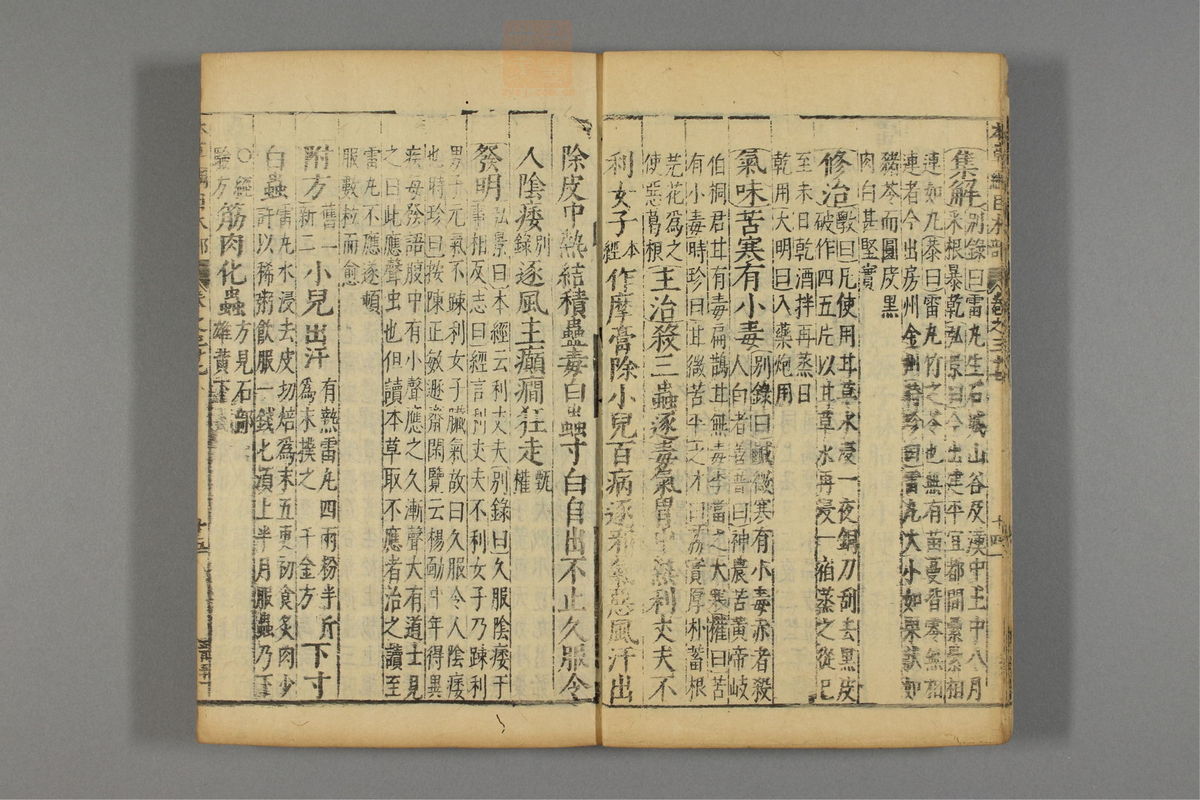 集解別錄曰雷丸生石城山谷及漢中土中八月
采根暴乾弘景曰今出建平宜都間纍纍相
連如丸恭曰雷丸竹之苓也無有苗蔓皆零無相
連者今出房州金州時珍曰雷丸大小如栗狀如
豬苓而圓皮黑
肉白甚堅實
修治斅曰凡使用甘草水浸一夜銅刀刮去黑皮
破作四五片以甘草水再浸一宿蒸之從巳
至未日乾酒拌再蒸日
乾用大明曰入藥炮用
氣味苦寒有小毒別錄曰鹹微寒有小毒赤者殺
人白者善普曰神農苦黃帝岐
伯桐君甘有毒扁鵲甘無毒李當之大寒權曰苦
有小毒時珍曰甘微苦平之才曰荔實厚朴蓄根
芫花為之
使惡葛根
主治殺三蟲逐毒氣胃中熱利丈夫不
利女子本
經作摩膏除小兒百病逐邪氣惡風汗出
除皮中熱結積蠱毒白蟲寸白自出不止久服令
人陰痿別
錄逐風主癲癇狂走甄
權
發明弘景曰本經云利丈夫別錄曰久服陰痿于
事相反志曰經言利丈夫不利女子乃疎利
男子元氣不疎利女子臟氣故曰久服令人陰痿
也時珍曰按陳正敏遯齋閑覽云楊勔中年得異
疾每發語腹中有小聲應之久漸聲大有道士見
之曰此應聲虫也但讀本草取不應者治之讀至
雷丸不應遂頓
服數粒而愈
附方舊一
新二小兒出汗有熱雷丸四兩粉半斤
為末撲之　千金方下寸
白蟲雷丸水浸去皮切焙為末五更初食炙肉少
許以稀粥飲服一錢匕須上半月服蟲乃下
○經
驗方筋肉化蟲方見石部
雄黃下